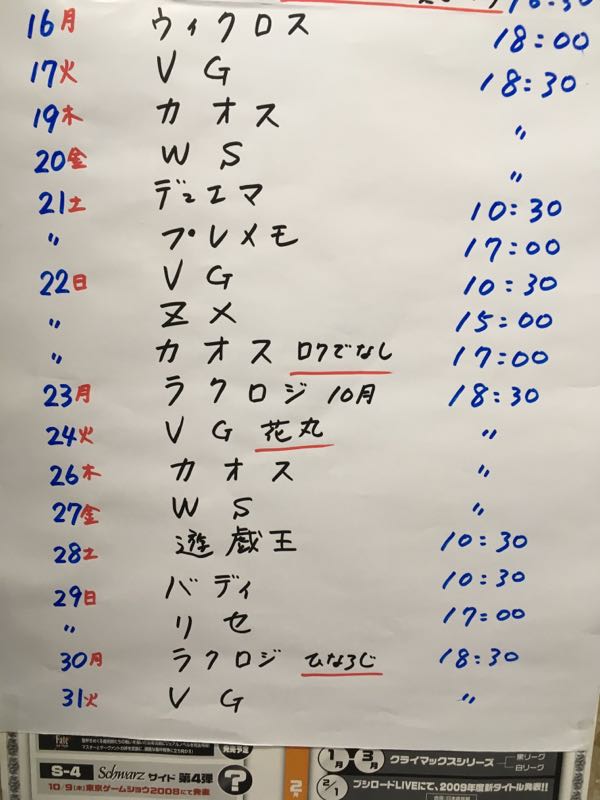 16:30
16月 ウィクロス 18:00
17火 VG 18:30
19木 カオス 〃
20金 WS 〃
21土 デュエマ 10:30
〃 プレメモ 17:00
22日 VG 10:30
〃 Zメ 15:00
〃 カオス ロクでなし 17:00
23月 ラクロジ 10月 18:30
24火 VG 花丸 〃
26木 カオス 〃
27金 WS 〃
28土 遊戯王 10:30
29日 バディ 10:30
〃 リセ 17:00
30月 ラクロジ ひなろじ 18:30
31火 VG 〃
Fate
発売予定
S-4 Schwarz サイド 第4弾
10/9(木)東京ゲームショウ2008にて発表
?
2月
1月 3月 クライマックスシリーズ 黒リーグ 白リーグ
2/1 ブシロードLIVEにて、2009年度新タイトル発表!!